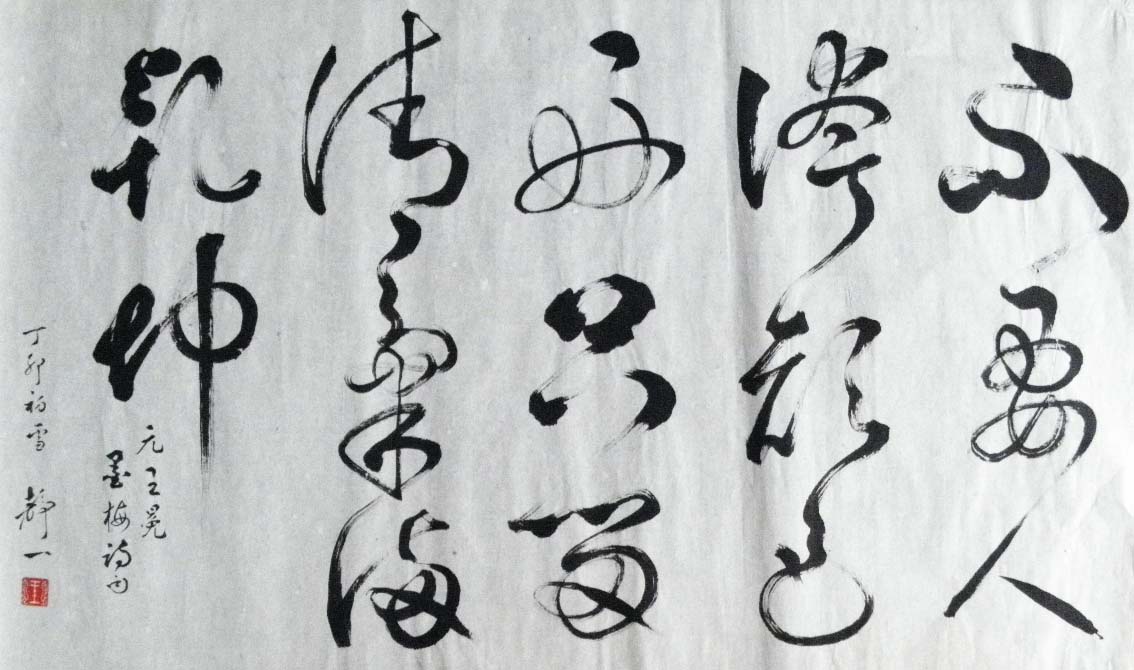 不要人
誇顏色
好只留
清氣滿
乾坤
元王冕
墨梅詩句
丁卯初雪 靜一